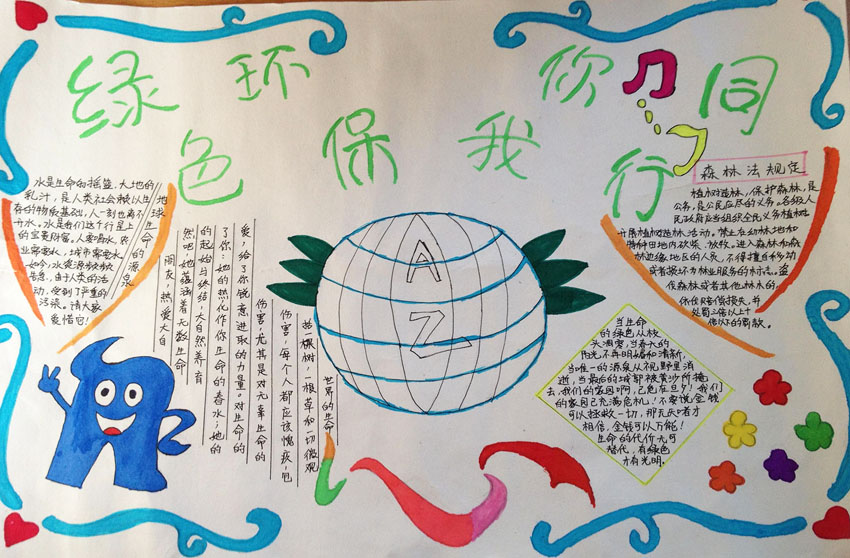 绿色环保我你同行
水是生命和摇篮、大地的
乳汁，是人类社会赖以生
存的物质基础，人一刻也离不
开水。水是我们这个行星上
的宝贵财富。人要喝水、农
业需要水，城市需要水。
如今，水资源频频
告急，由于人类的活
动，受到了严重的
污染。请大家
爱惜它！
地球生命的源泉
朋友，热爱大自
然吧 她蕴涵着无数生命
的起始与终结，大自然养育
了你：她的热化作你生命的春水；她的
爱，给了你锐意进取的力量。对生命的
伤害，尤其是对无辜生命的
伤害，每个人都应该愧疚，包
括一棵树，一根草和一切微观
世界的生命
A
Z
森林法规定
植树造林、保护森林，是
公务，是公民应尽的义务。各级人
民政府应当组织全民义务植树
开展植树造林活动。禁止在幼林地和
特种田地内砍柴、放牧。进入森林和森
林边缘地区的人员，不得擅自移动
或者损坏为林业服务的标志。盗
伐森林或者其他林木的，
依法赔偿损失，并
处罚
当生命
的绿色从枝
头凋零，当春天的
阳光，不再明媚和清新，
当唯一的源泉从视野里消
逝，当最后的城都被黄沙所掩
去，我们的家园啊，已危在旦夕！我们
的家园已充满危机！不要说金钱
可以拯救一切，那无知者才
相信，金钱可以万能！
生命的代价无可
替代，有绿色
才有光明。